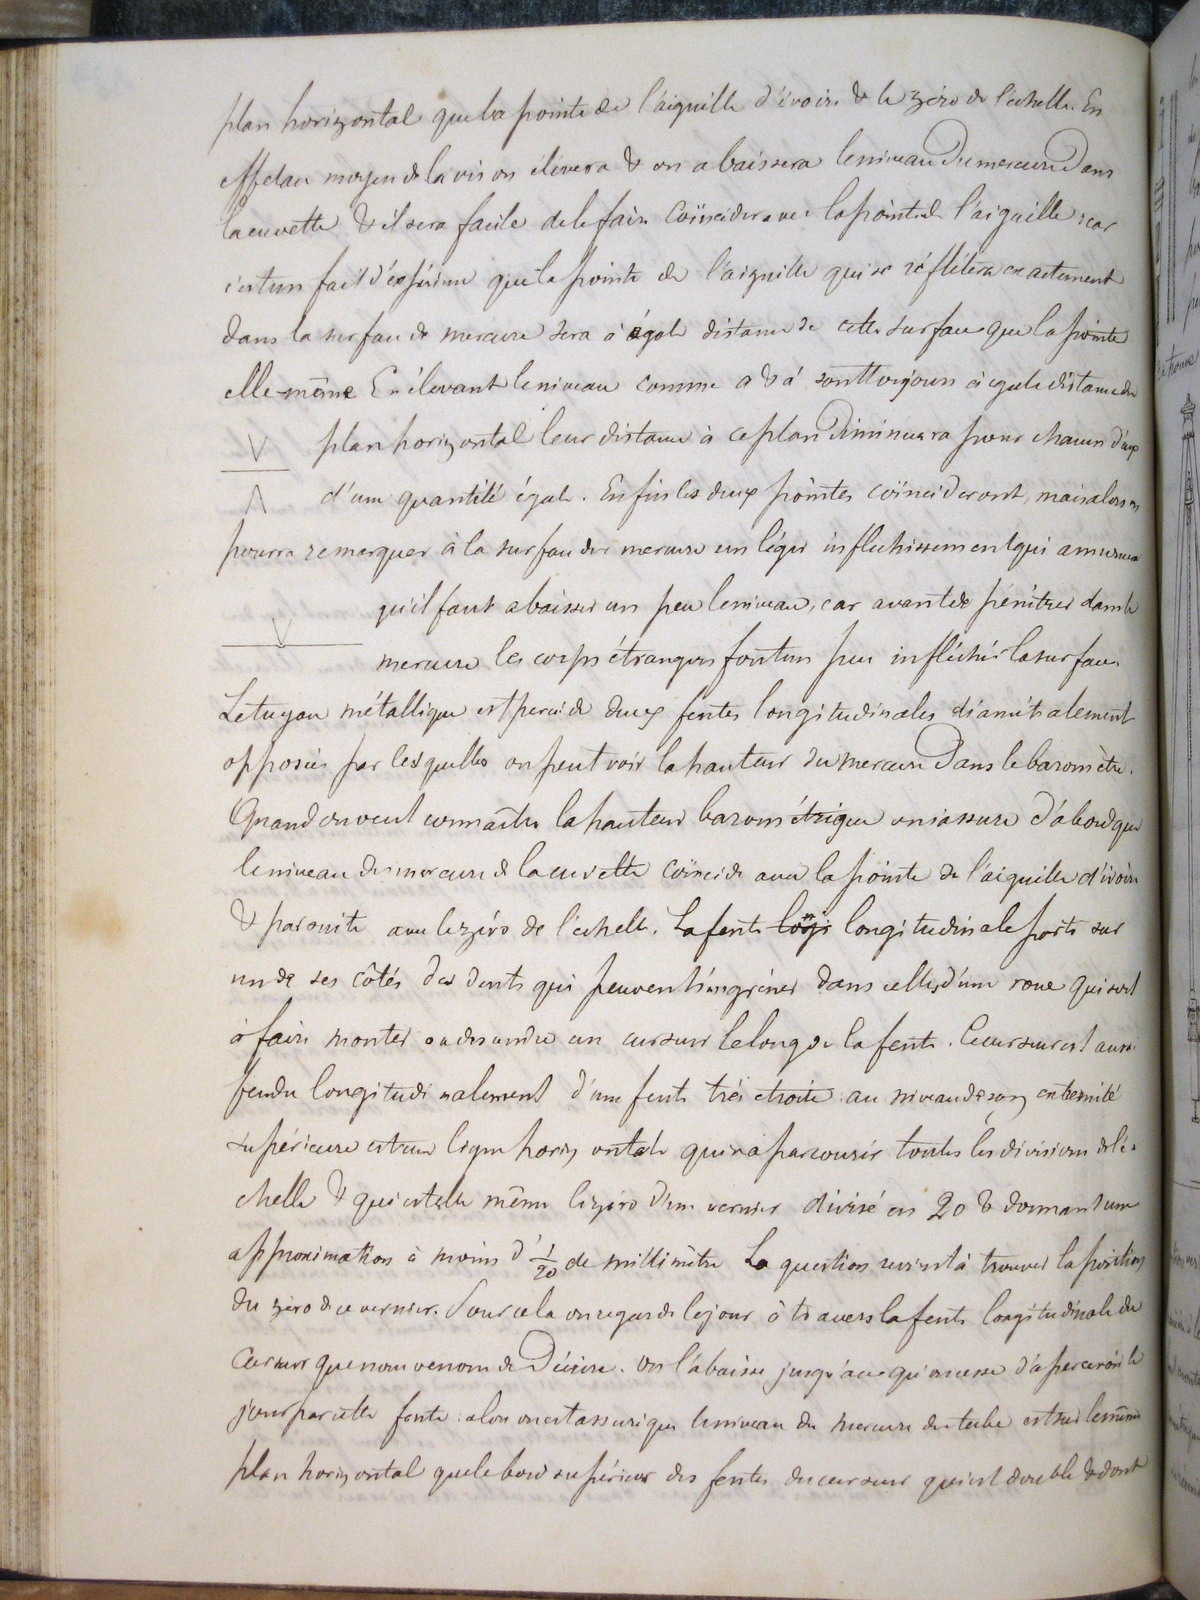 plan horizontal que la pointe de l'aiguille d'ivoire & le zéro de l'échelle. En
effet au moyen de la vis on élèvera & on abaissera le niveau du mercure dans
la cuvette & il sera facile de le faire coïncider avec la pointe de l'aiguille : car
c'est un fait d'expérience que la pointe de l'aiguille qui se réflétera exactement
dans la surface de mercure sera à égale distance de cette surface que la pointe
elle-même En élevant le niveau comme a & a' sont toujours à égale distance du
plan horizontal leur distance à ce plan diminuera pour chacun d'eux
d'une quantité égale. Enfin les deux pointes coïncideront, mais alors on
pourra remarquer à la surface du mercure un léger infléchissement qui annonce
qu'il faut abaisser un peu le niveau, car avant de pénétrer dans le
mercure les corps étrangers font un peu infléchir la surface.
Le tuyau métallique est percé de deux fentes longitudinales diamétralement
opposées par lesquelles on peut voir la hauteur du mercure dans le baromètre.
Quand on veut connaître la hauteur barométrique on s'assure d'abord que
le niveau du mercure de la cuvette coïncide avec la pointe de l'aiguille d'ivoire
& par suite avec le zéro de l'échelle. La fente longitudinale porte sur
un de ses côtés des dents qui peuvent s'engréner dans celles d'une roue qui sert
à faire monter ou descendre un curseur le long de la fente. Ce curseur est aussi
fendu longitudinalement d'une fente très étroite : au niveau de son extrémité
supérieure est une ligne horizontale qui va parcourir toutes les divisions de l'é-
chelle & qui est elle même le zéro d'un vernier divisé en 20 & donnant une
approximation à moins d'1/20 de millimètre La question revient à trouver la position
du zéro de ce vernier. Pour cela on regarde le jour à travers la fente longitudinale du
curseur que nous venons de décrire. On l'abaisse jusqu'à ce qu'on cesse d'apercevoir le
jour par cette fente : alors on est assuré que le niveau du mercure du tube est sur le même
plan horizontal que le bord supérieur des fentes du curseur qui est double & dont